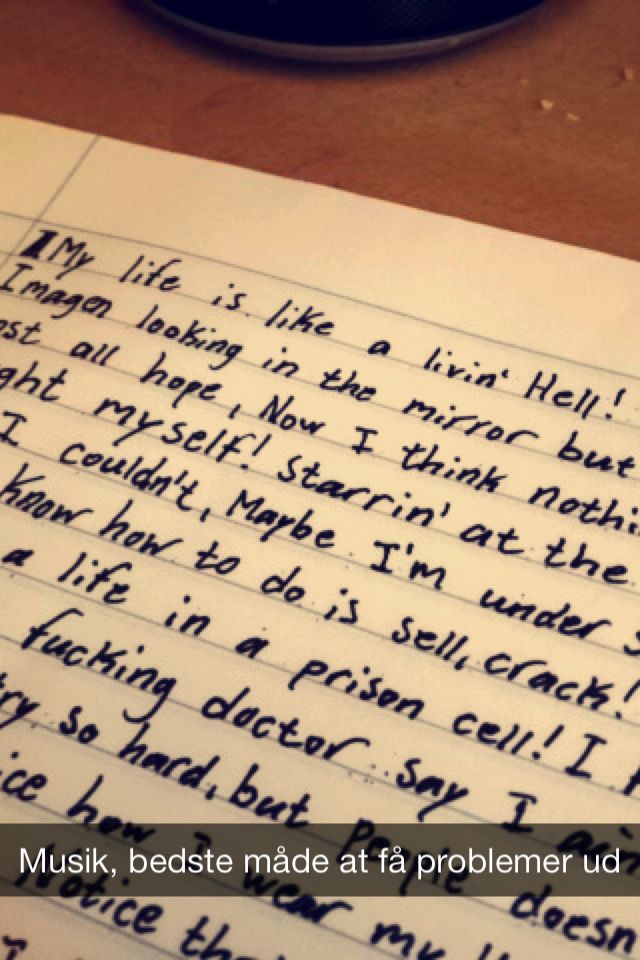 My life is like a livin' Hell!
Imagen looking in the mirror but
all hope, Now I think
myself! Starrin' at the
I couldn't, Maybe I'm under
Know how to do is sell, crack!
a life in a prison cell! I
fucking doctor say I
so hard, but people
how I wear my
Notice
I
Musik, bedste måde at få problemer ud